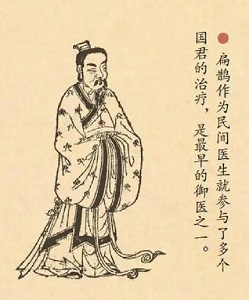 扁鹊作为民间医生就参与了多个
国君的治疗，是最早的御医之一。